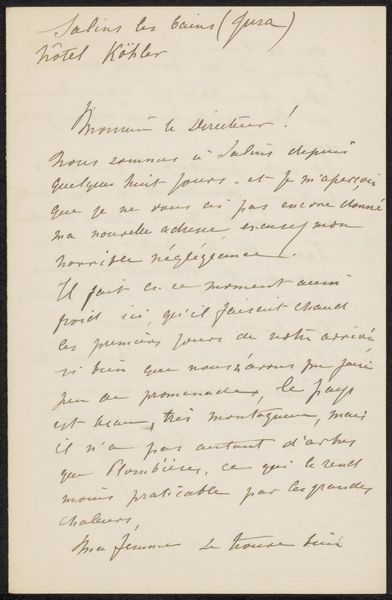 Salins les bains (Jura)
hôtel Köhler
Monsieur le Directeur !
Nous sommes à Salins depuis
quelques huit jours - et je m'aperçois
que je ne vous ai pas encore donné
ma nouvelle adresse excusez mon
horrible négligéance.
Il fait en ce moment aussi
froid ici, qu'il faisait chaud
les premiers jours de notre arrivée
si bien que nous n'avons pu faire
peu de promenades, le pays
est beau, très montagneux, mais
il n'a pas autant d'arbres
que Plombières, ce qui le rend
moins praticable par les grandes
chaleurs,
Ma femme se trouve bien